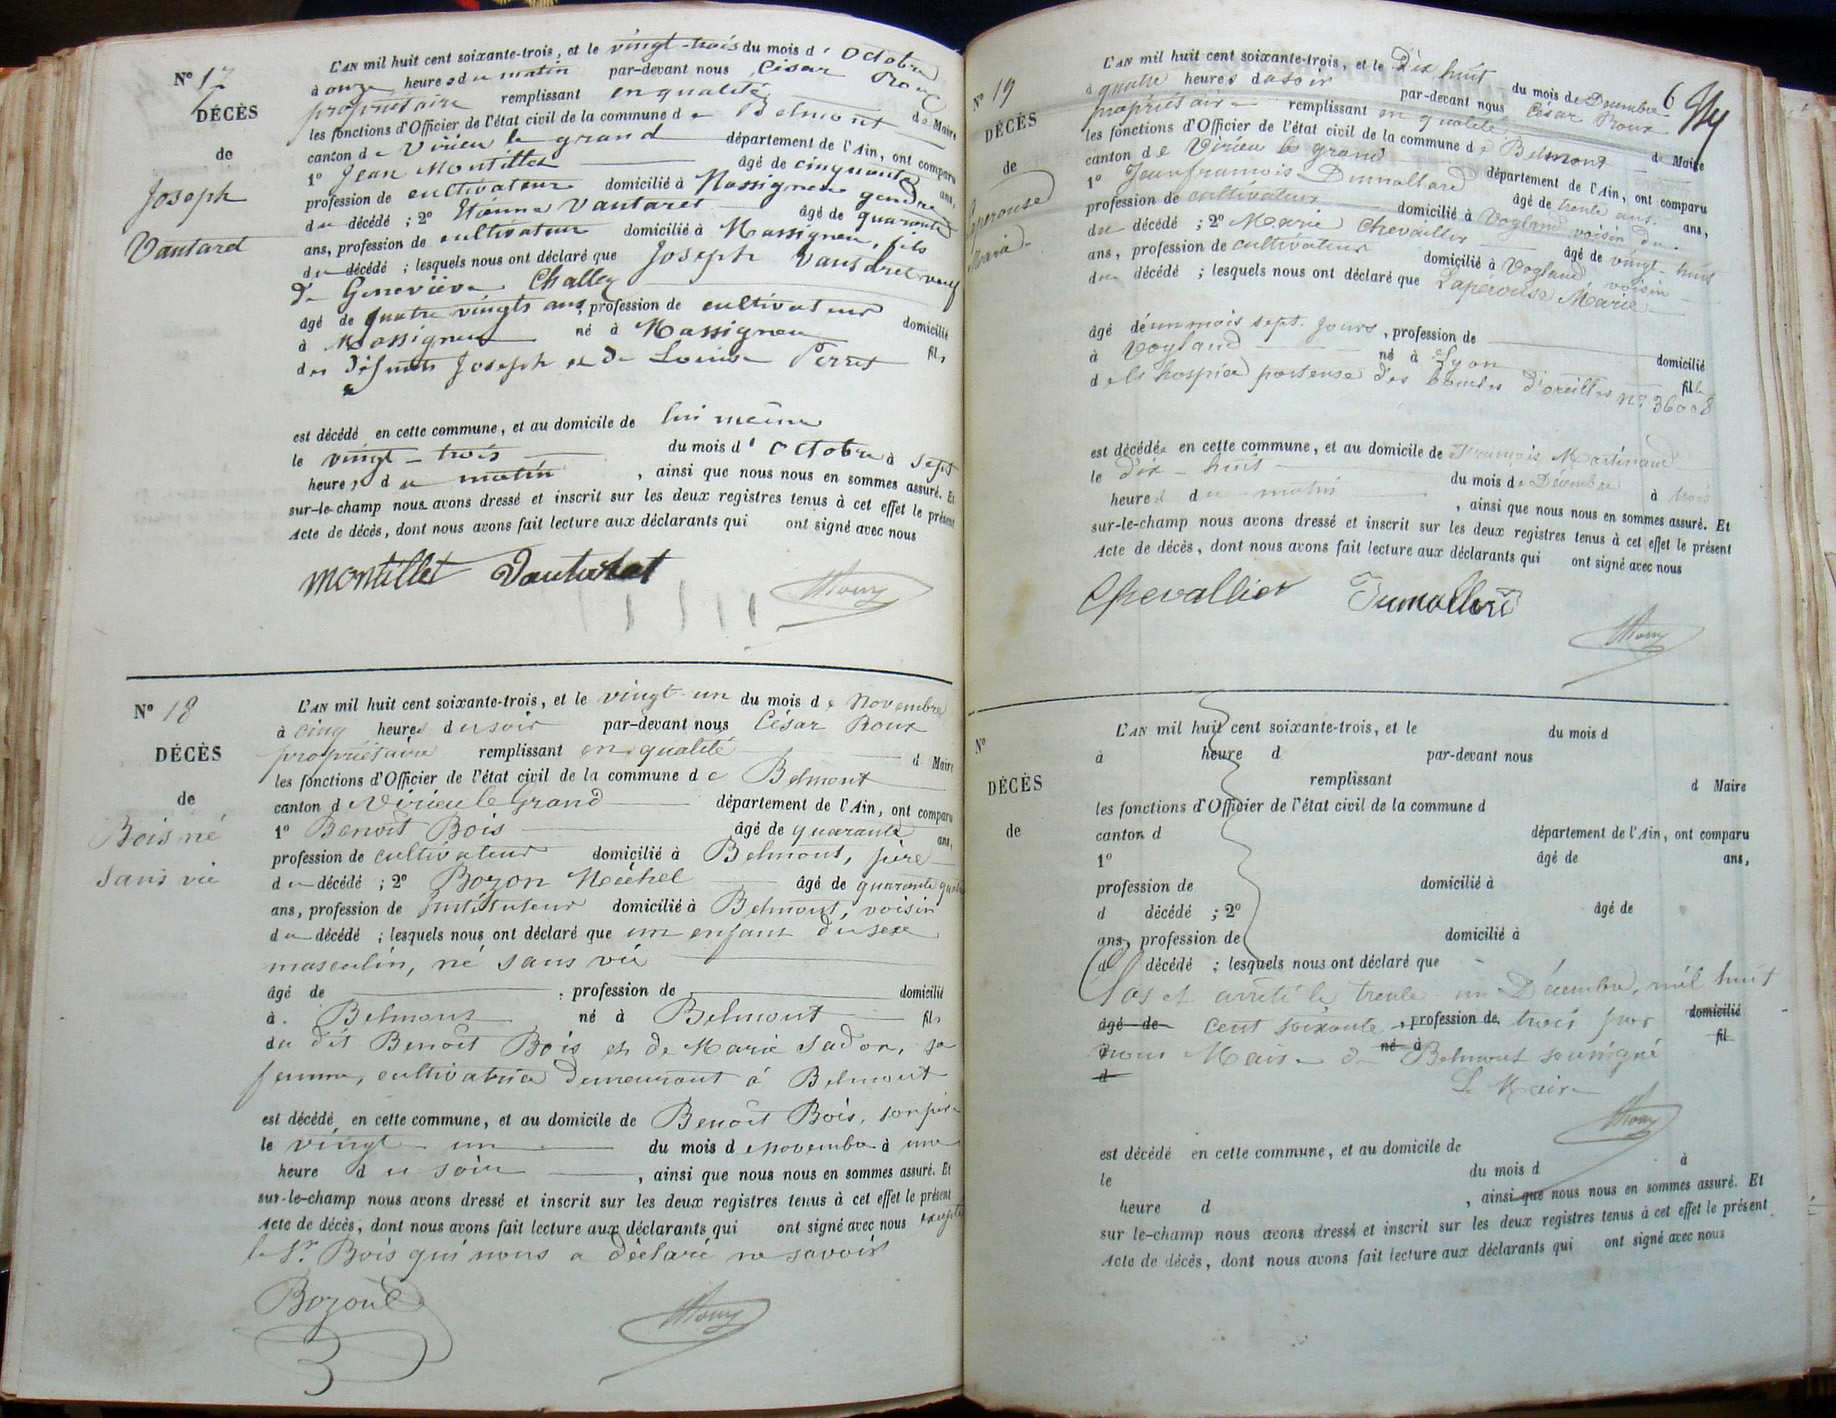 N° 17
DÉCÈS
de
Joseph
Vautaret
L'AN mil huit cent soixante-trois, et le vingt-trois du mois d'Octobre
à onze heures du matin par-devant nous César Roux
propriétaire remplissant en qualité de Maire
les fonctions d'Officier de l'état civil de la commune de Belmont
canton de Virieu le grand département de l'Ain, ont comparu
1° Jean Montillet âgé de cinquante ans,
profession de cultivateur domicilié à Massignieu gendre
du décédé ; 2° Etienne Vautaret âgé de quarante
ans, profession de cultivateur domicilié à Massignieu, fils
du décédé ; lesquels nous ont déclaré que Joseph Vautaret veuf
de Geneviève Challey
âgé de quatre vingts ans, profession de cultivateur domicilié
à Massignieu né à Massignieu fils
des défunts Joseph et de Louise Perret
est décédé en cette commune, et au domicile de lui même
le vingt-trois du mois d'Octobre à sept
heures du matin, ainsi que nous nous en sommes assuré. Et
sur-le-champ nous avons dressé et inscrit sur les deux registres tenus à cet effet le présent
Acte de décès, dont nous avons fait lecture aux déclarants qui ont signé avec nous
Montillet Vautaret Roux
N° 18
DÉCÈS
de
Bois né
sans vie
L'AN mil huit cent soixante-trois, et le vingt-un du mois de Novembre
à cinq heures du soir par-devant nous César Roux
propriétaire remplissant en qualité d Maire
les fonctions d'Officier de l'état civil de la commune de Belmont
canton d Virieu le Grand département de l'Ain, ont comparu
1° Benoît Bois âgé de quarante ans,
profession de cultivateur domicilié à Belmont, père
du décédé ; 2° Bozon Michel âgé de quarante quatre
ans, profession de instituteur domicilié à Belmont, voisin
du décédé ; lesquels nous ont déclaré que un enfant du sexe
masculin, né sans vie
âgé de , profession de domicilié
à Belmont né à Belmont fils
du dit Benoît Bois et de Marie Sador, sa
femme, cultivatrice demeurant à Belmont
est décédé en cette commune, et au domicile de Benoît Bois, son père
le vingt un du mois de novembre à une
heure du soir, ainsi que nous nous en sommes assuré. Et
sur-le-champ nous avons dressé et inscrit sur les deux registres tenus à cet effet le présent
Acte de décès, dont nous avons fait lecture aux déclarants qui ont signé avec nous excepté
le Sr Bois qui nous a déclaré ne savoir
Bozon Roux
6
N° 19
DÉCÈS
de
Laperouse
Marie
L'AN mil huit cent soixante-trois, et le Dix huit du mois de Décembre
à quatre heures du soir par-devant nous César Roux
propriétaire remplissant en qualité de Maire
les fonctions d'Officier de l'état civil de la commune de Belmont
canton de Virieu le grand département de l'Ain, ont comparu
1° Jean françois Dumollard âgé de trente ans,
profession de cultivateur domicilié à Vogland voisin du
du décédé ; 2° Marie Chevallier âgé de vingt-huit
ans, profession de cultivateur domicilié à Vogland voisin
du décédé ; lesquels nous ont déclaré que Laperouse Marie
âgé de un mois sept jours, profession de domicilié
à Vogland né à Lyon fille
de l'hospice porteuse des boucles d'oreilles n° 36008
est décédée en cette commune, et au domicile de François Martinand
le dix-huit du mois de Décembre à trois
heures du matin, ainsi que nous nous en sommes assuré. Et
sur-le-champ nous avons dressé et inscrit sur les deux registres tenus à cet effet le présent
Acte de décès, dont nous avons fait lecture aux déclarants qui ont signé avec nous
Chevallier Dumollard Roux
N°
DÉCÈS
de
L'AN mil huit cent soixante-trois, et le du mois d
à heure d par-devant nous
remplissant d Maire
les fonctions d'Officier de l'état civil de la commune d
canton d département de l'Ain, ont comparu
1° âgé de ans,
profession de domicilié à
d décédé ; 2° âgé de
ans, profession de domicilié à
d décédé ; lesquels nous ont déclaré que
Clos et arrêté le trente un Décembre, mil huit
âgé de cent soixante, profession de trois par domicilié
nous Maire de né à Belmont soussigné fil
d Le Maire
Roux
est décédé en cette commune, et au domicile de
le du mois d à
heure d , ainsi que nous nous en sommes assuré. Et
sur le-champ nous avons dressé et inscrit sur les deux registres tenus à cet effet le présent
Acte de décès, dont nous avons fait lecture aux déclarants qui ont signé avec nous